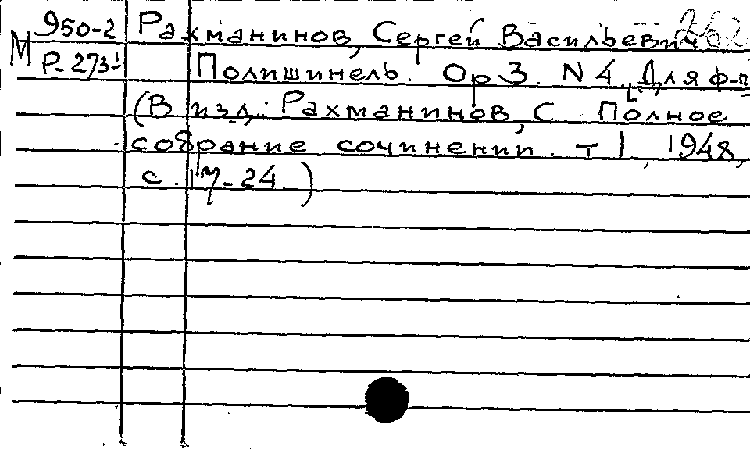 950-2 Рахманинов, Сергей Васильевич 262
М Р-273 Полишинель. Ор 3. N 4. Для ф-п
(В изд.: Рахманинов, С. Полное
собрание сочинении. т 1, 1948,
с. 17-24.)